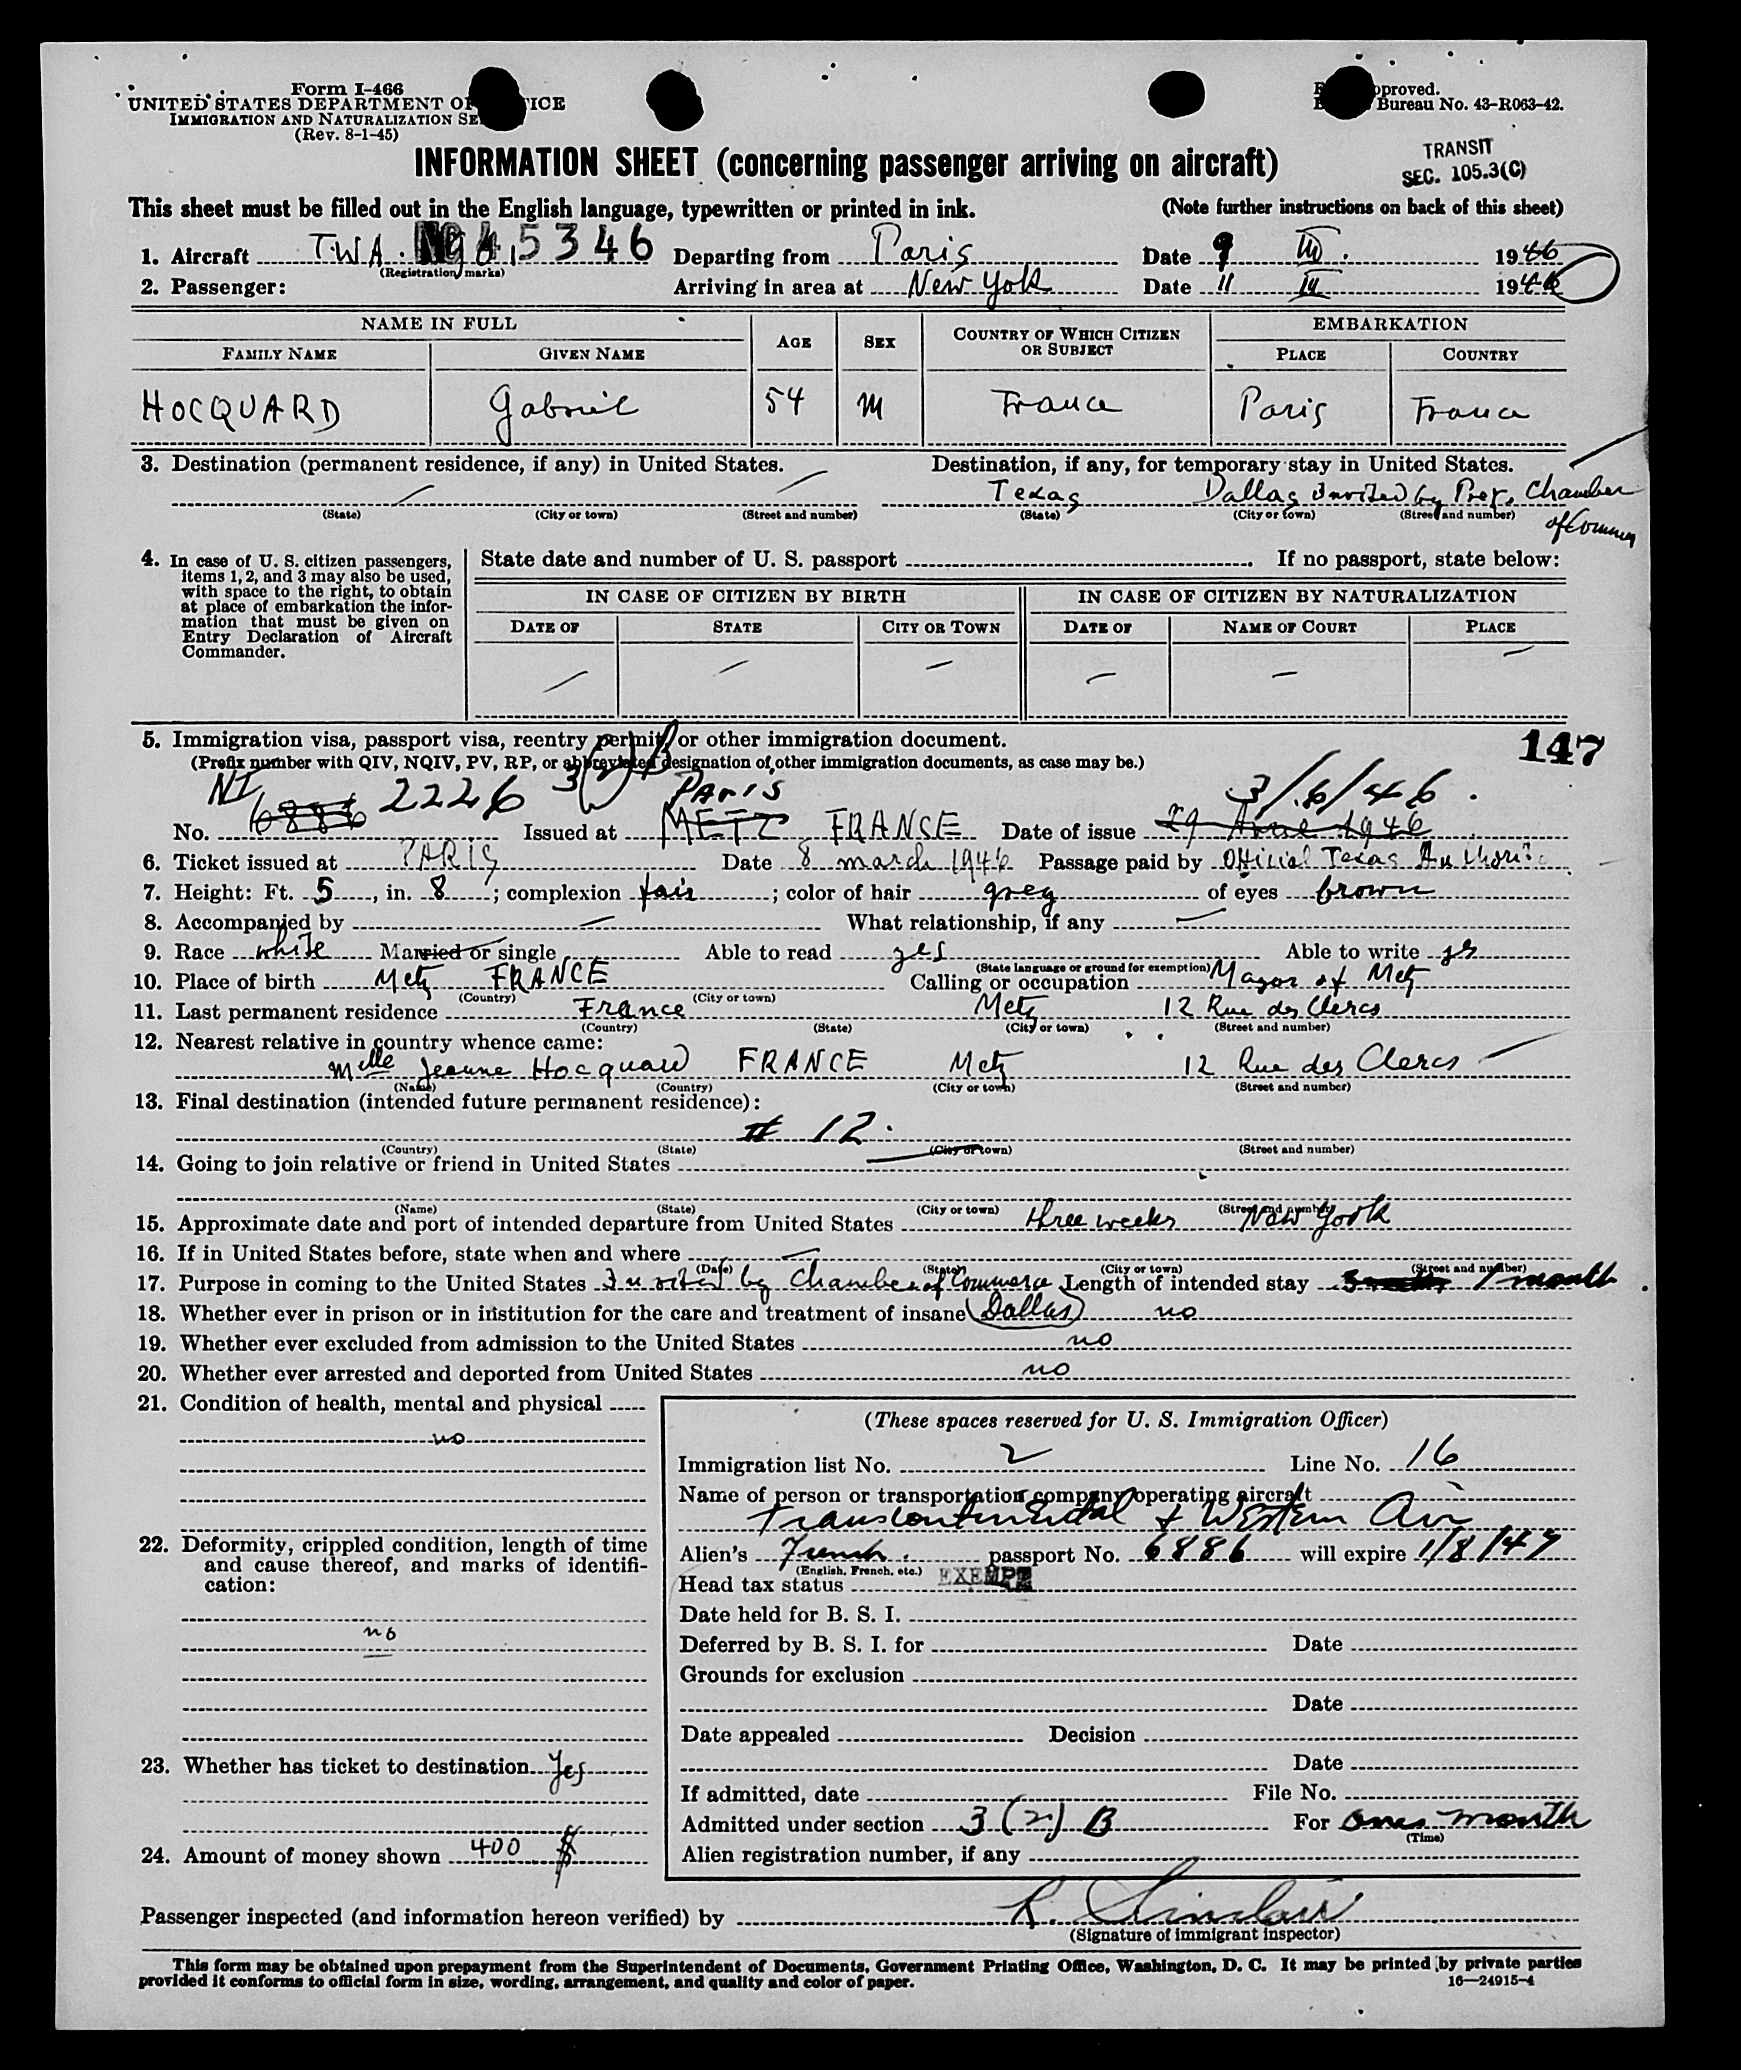 Form I-466
UNITED STATES DEPARTMENT OF JUSTICE
IMMIGRATION AND NATURALIZATION SE
(Rev. 8-1-45)
proved.
Bureau No. 43-R063-42.
TRANSIT
SEC. 105.3(C)
INFORMATION SHEET (concerning passenger arriving on aircraft)
This sheet must be filled out in the English language, typewritten or printed in ink. (Note further instructions on back of this sheet)
1. Aircraft TWA. 45346 Departing from Paris Date 9 III. 1946
(Registration marks)
2. Passenger: Arriving in area at New York Date 11 III 1946
NAME IN FULL AGE SEX COUNTRY OF WHICH CITIZEN OR SUBJECT EMBARKATION
FAMILY NAME GIVEN NAME PLACE COUNTRY
HOCQUARD Gabriel 54 M France Paris France
3. Destination (permanent residence, if any) in United States. Destination, if any, for temporary stay in United States.
Texas Dallas Invited by Pres. Chamber
(State) (City or town) (Street and number) (State) (City or town) (Street and number)
of Commerce
4. In case of U. S. citizen passengers, items 1, 2, and 3 may also be used, with space to the right, to obtain at place of embarkation the information that must be given on Entry Declaration of Aircraft Commander.
State date and number of U. S. passport If no passport, state below:
IN CASE OF CITIZEN BY BIRTH IN CASE OF CITIZEN BY NATURALIZATION
DATE OF STATE CITY OR TOWN DATE OF NAME OF COURT PLACE
5. Immigration visa, passport visa, reentry permit, or other immigration document. 147
(Prefix number with QIV, NQIV, PV, RP, or abbreviated designation of other immigration documents, as case may be.)
NI 2226 3(2)B Paris 3/6/46.
No. 6886 Issued at METZ FRANCE Date of issue 29 1946
6. Ticket issued at PARIS Date 8 march 1946 Passage paid by Official Texas Authorite
7. Height: Ft. 5, in. 8; complexion fair; color of hair grey of eyes brown
8. Accompanied by What relationship, if any
9. Race white Married or single Able to read yes Able to write yes
(State language or ground for exemption)
10. Place of birth Metz FRANCE Calling or occupation Mayor of Metz
(Country) (City or town)
11. Last permanent residence France Metz 12 Rue des Clercs
(Country) (State) (City or town) (Street and number)
12. Nearest relative in country whence came:
Melle Jeanne Hocquard FRANCE Metz 12 Rue des Clercs
(Name) (Country) (City or town) (Street and number)
13. Final destination (intended future permanent residence):
# 12.
(Country) (State) (City or town) (Street and number)
14. Going to join relative or friend in United States
(Name) (State) (City or town) (Street and number)
15. Approximate date and port of intended departure from United States three weeks New York
16. If in United States before, state when and where
(Date) (State) (City or town) (Street and number)
17. Purpose in coming to the United States Invited by Chamber of Commerce Length of intended stay 1 month
18. Whether ever in prison or in institution for the care and treatment of insane (Dallas) no
19. Whether ever excluded from admission to the United States no
20. Whether ever arrested and deported from United States no
21. Condition of health, mental and physical
no
22. Deformity, crippled condition, length of time and cause thereof, and marks of identification:
no
23. Whether has ticket to destination Yes
24. Amount of money shown 400 $
(These spaces reserved for U. S. Immigration Officer)
Immigration list No. 2 Line No. 16
Name of person or transportation company operating aircraft
Transcontinental & Western Air
Alien's French. passport No. 6886 will expire 1/8/47
(English, French, etc.)
Head tax status EXEMPT
Date held for B. S. I.
Deferred by B. S. I. for Date
Grounds for exclusion
Date
Date appealed Decision
Date
If admitted, date File No.
Admitted under section 3(2)B For one month
(Time)
Alien registration number, if any
Passenger inspected (and information hereon verified) by R. Sinclair
(Signature of immigrant inspector)
This form may be obtained upon prepayment from the Superintendent of Documents, Government Printing Office, Washington, D. C. It may be printed by private parties
provided it conforms to official form in size, wording, arrangement, and quality and color of paper. 16—24915-4